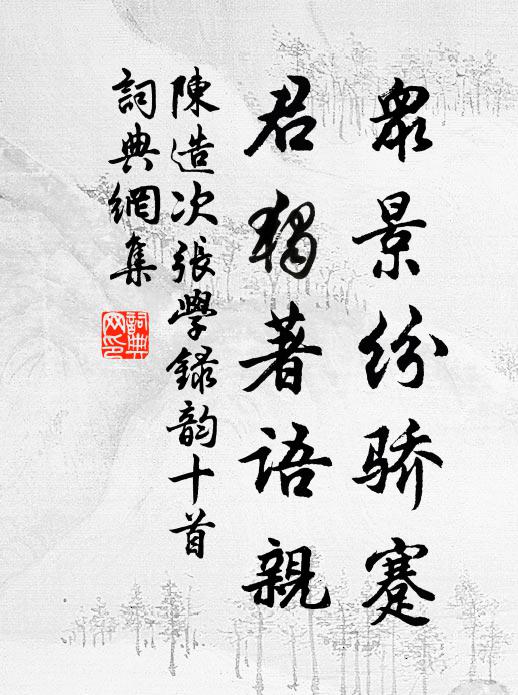 眾景紛骄蹇
君獨著語親
陳造次張學録韵十首
詞典網集
詞典网印